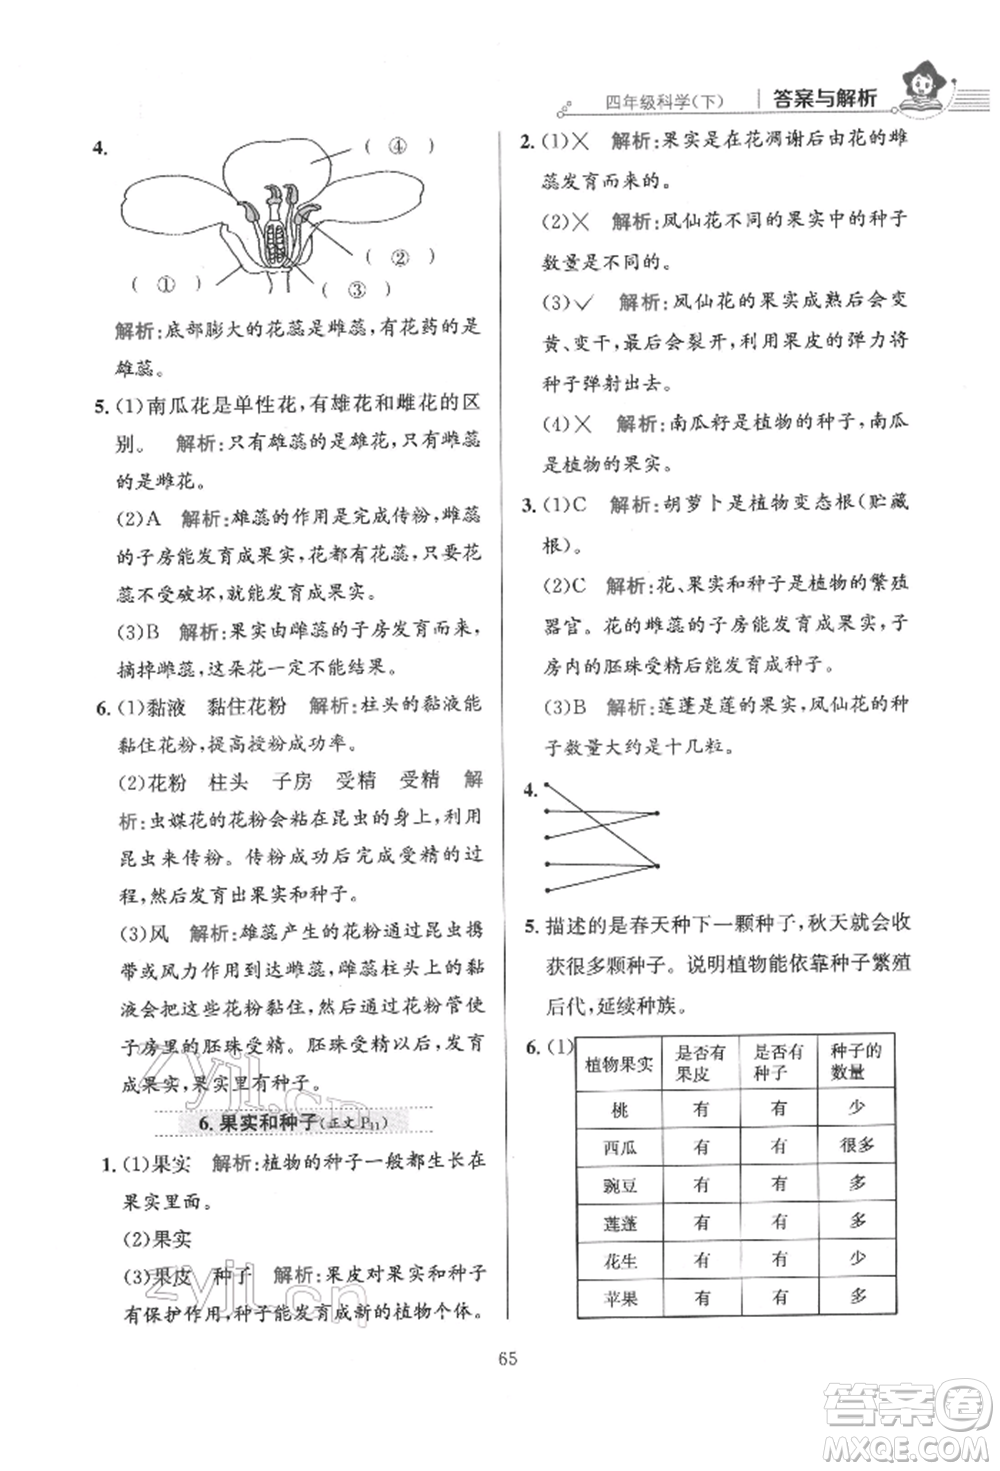 四年级科学(下) 答案与解析
4.
( ④ )
( ② )
( ① )
( ③ )
解析:底部膨大的花蕊是雌蕊,有花药的是
雄蕊。
5. (1)南瓜花是单性花,有雄花和雌花的区
别。 解析:只有雄蕊的是雄花,只有雌蕊
的是雌花。
(2)A 解析:雄蕊的作用是完成传粉,雌蕊
的子房能发育成果实,花都有花蕊,只要花
蕊不受破坏,就能发育成果实。
(3)B 解析:果实由雌蕊的子房发育而来,
摘掉雌蕊,这朵花一定不能结果。
6. (1)黏液 黏住花粉 解析:柱头的黏液能
黏住花粉,提高授粉成功率。
(2)花粉 柱头 子房 受精 受精 解
析:虫媒花的花粉会粘在昆虫的身上,利用
昆虫来传粉。传粉成功后完成受精的过
程,然后发育出果实和种子。
(3)风 解析:雄蕊产生的花粉通过昆虫携
带或风力作用到达雌蕊,雌蕊柱头上的黏
液会把这些花粉黏住,并通过花粉管使
子房里的胚珠受精。胚珠受精以后,发育
成果实,果实里有种子。
6. 果实和种子(正文 P11)
1. (1)果实 解析:植物的种子一般都生长在
果实里面。
(2)果实
(3)果皮 种子 解析:果皮对果实和种子
有保护作用,种子能发育成新的植物个体。
2. (1)✕ 解析:果实是在花凋谢后由花的雌
蕊发育而来的。
(2)✕ 解析:凤仙花不同的果实中的种子
数量是不同的。
(3)✓ 解析:凤仙花的果实成熟后会变
黄、变干,最后会裂开,利用果皮的弹力将
种子弹射出去。
(4)✕ 解析:南瓜籽是植物的种子,南瓜
是植物的果实。
3. (1)C 解析:胡萝卜是植物变态根(贮藏
根)。
(2)C 解析:花、果实和种子是植物的繁殖
器官。花的雌蕊的子房能发育成果实,子
房内的胚珠受精后能发育成种子。
(3)B 解析:莲蓬是莲的果实,凤仙花的种
子数量大约是十几粒。
4.
5. 描述的是春天种下一颗种子,秋天就会收
获很多颗种子。说明植物能依靠种子繁殖
后代,延续种族。
6. (1)
植物果实 是否有果皮 是否有种子 种子的数量
桃 有 有 少
西瓜 有 有 很多
豌豆 有 有 多
莲蓬 有 有 多
花生 有 有 少
苹果 有 有 多
65
zyjl.cn
zyjl.cn
答案圈
MXQE.COM